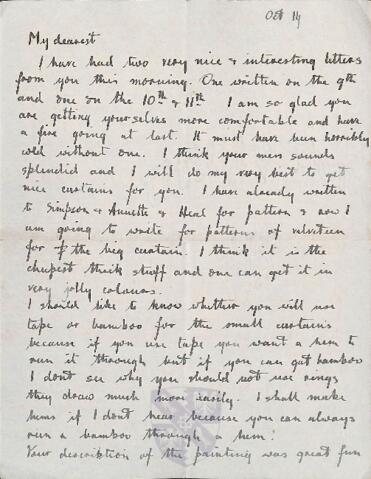 Oct 14
My dearest
I have had two very nice & interesting letters
from you this morning. One written on the 9th
and one on the 10th & 11th I am so glad you
are getting yourselves more comfortable and have
a fire going at last. It must have been horribly
cold without one. I think your mess sounds
splendid and I will do my very best to get
nice curtains for you. I have already written
to Simpson & & Heal for pattern & now I
am going to write for patterns of velveteen
for the big curtain. I think it is the
cheapest thick stuff and one can get it in
very jolly colours.
I should like to know whether you will use
tape or bamboo for the small curtains
because if you use tape you want a hem to
run it through but if you can get bamboo
I dont see why you should not use rings
they draw much more easily. I shall make
hems if I dont hear because you can always
run a bamboo through a hem.
Your description of the painting was great fun